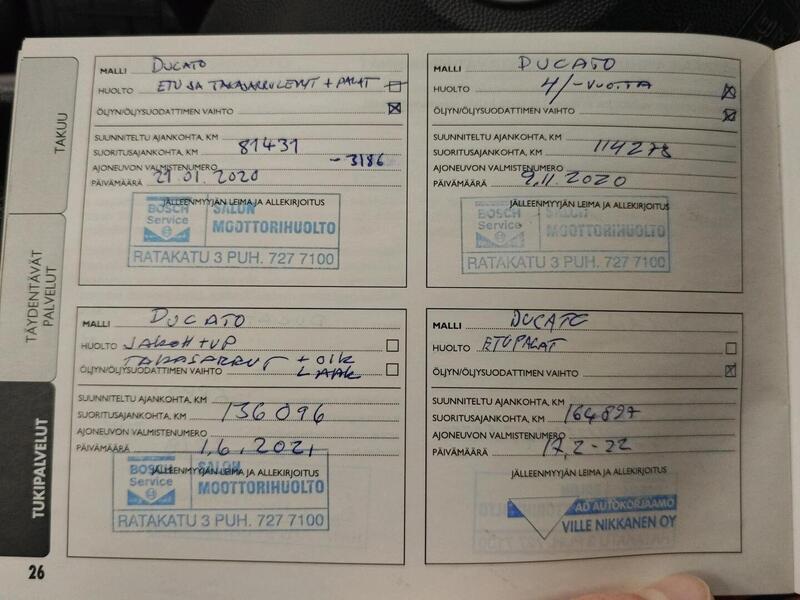 TAKUU
TÄYDENTÄVÄT
PALVELUT
TUKIPALVELUT
MALLI DUCATO
HUOLTO ETU JA TAKAJARRULEVYT + PALAT
ÖLJYN/ÖLJYSUODATTIMEN VAIHTO
SUUNNITELTU AJANKOHTA, KM
SUORITUSAJANKOHTA, KM 81431
AJONEUVON VALMISTENUMERO -3186
PÄIVÄMÄÄRÄ 21.01.2020
JÄLLEENMYYJÄN LEIMA JA ALLEKIRJOITUS
BOSCH Service SALON
MOOTTORIHUOLTO
RATAKATU 3 PUH. 727 7100
MALLI DUCATO
HUOLTO 4/-VUOTTA
ÖLJYN/ÖLJYSUODATTIMEN VAIHTO
SUUNNITELTU AJANKOHTA, KM
SUORITUSAJANKOHTA, KM 114278
AJONEUVON VALMISTENUMERO
PÄIVÄMÄÄRÄ 9.11.2020
JÄLLEENMYYJÄN LEIMA JA ALLEKIRJOITUS
BOSCH Service SALON
MOOTTORIHUOLTO
RATAKATU 3 PUH. 727 7100
MALLI DUCATO
HUOLTO JAKOH + VP
TAKAJARRUT + OIK
ÖLJYN/ÖLJYSUODATTIMEN VAIHTO
SUUNNITELTU AJANKOHTA, KM
SUORITUSAJANKOHTA, KM 136096
AJONEUVON VALMISTENUMERO
PÄIVÄMÄÄRÄ 1.6.2021
JÄLLEENMYYJÄN LEIMA JA ALLEKIRJOITUS
BOSCH Service SALON
MOOTTORIHUOLTO
RATAKATU 3 PUH. 727 7100
MALLI DUCATO
HUOLTO ETUPALAT
ÖLJYN/ÖLJYSUODATTIMEN VAIHTO
SUUNNITELTU AJANKOHTA, KM
SUORITUSAJANKOHTA, KM 164897
AJONEUVON VALMISTENUMERO
PÄIVÄMÄÄRÄ 17.2-22
JÄLLEENMYYJÄN LEIMA JA ALLEKIRJOITUS
AD AUTOKORJAAMO
VILLE NIKKANEN OY
26